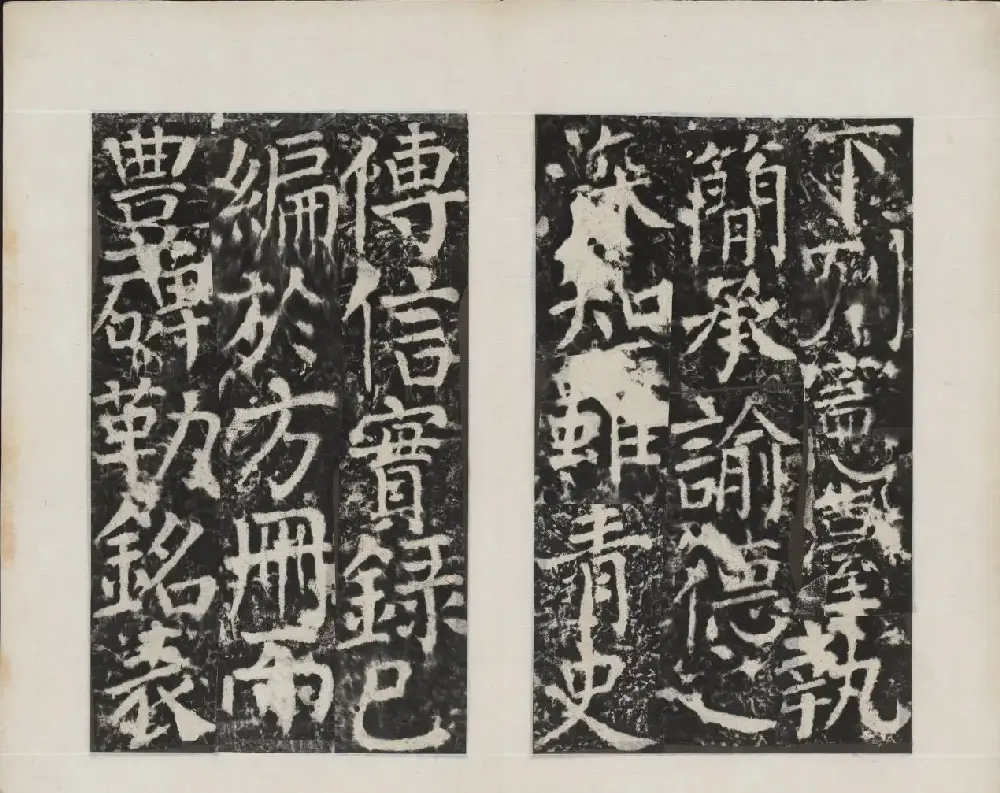 下列憲臺執
簡承諭德之
深知雖青史
傳信實錄已
編於方冊而
豊碑勒銘表